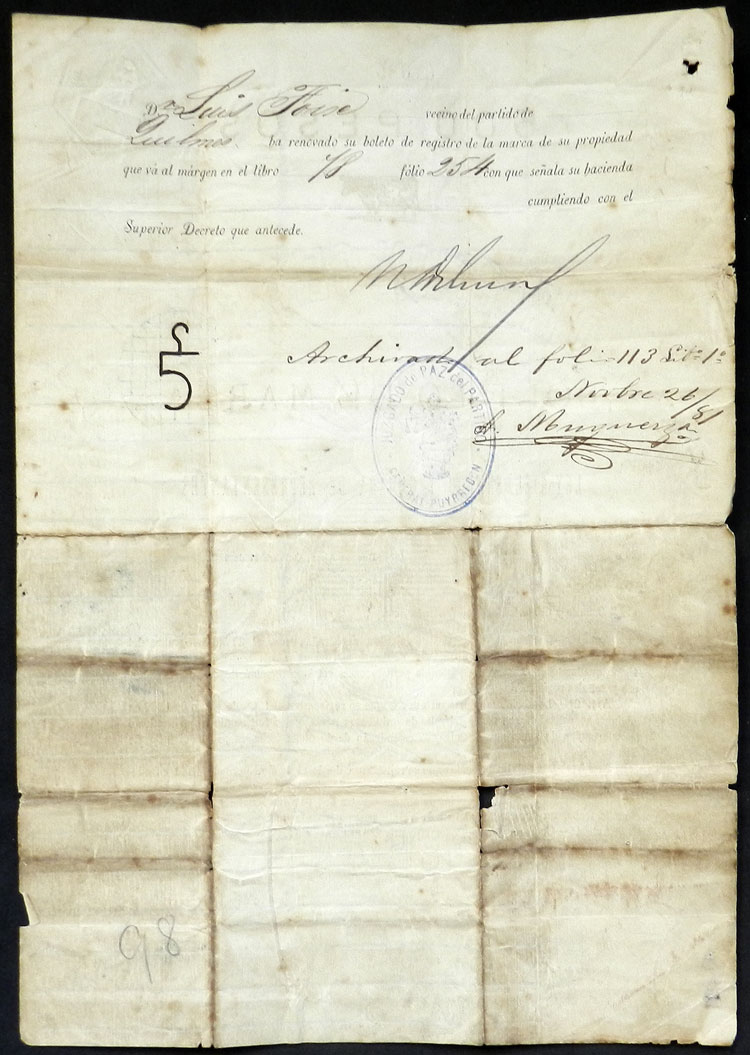 Dn Luis vecino del partido de
Quilmes ha renovado su boleto de registro de la marca de su propiedad
que vá al márgen en el libro 18 fólio 254 con que señala su hacienda
cumpliendo con el
Superior Decreto que antecede.
Archivado al folio 113 Lib.o 1o
Novbre 26/81
Muguerza
JUZGADO de PAZ del PARTIDO
GENERAL PUYRREDON
98